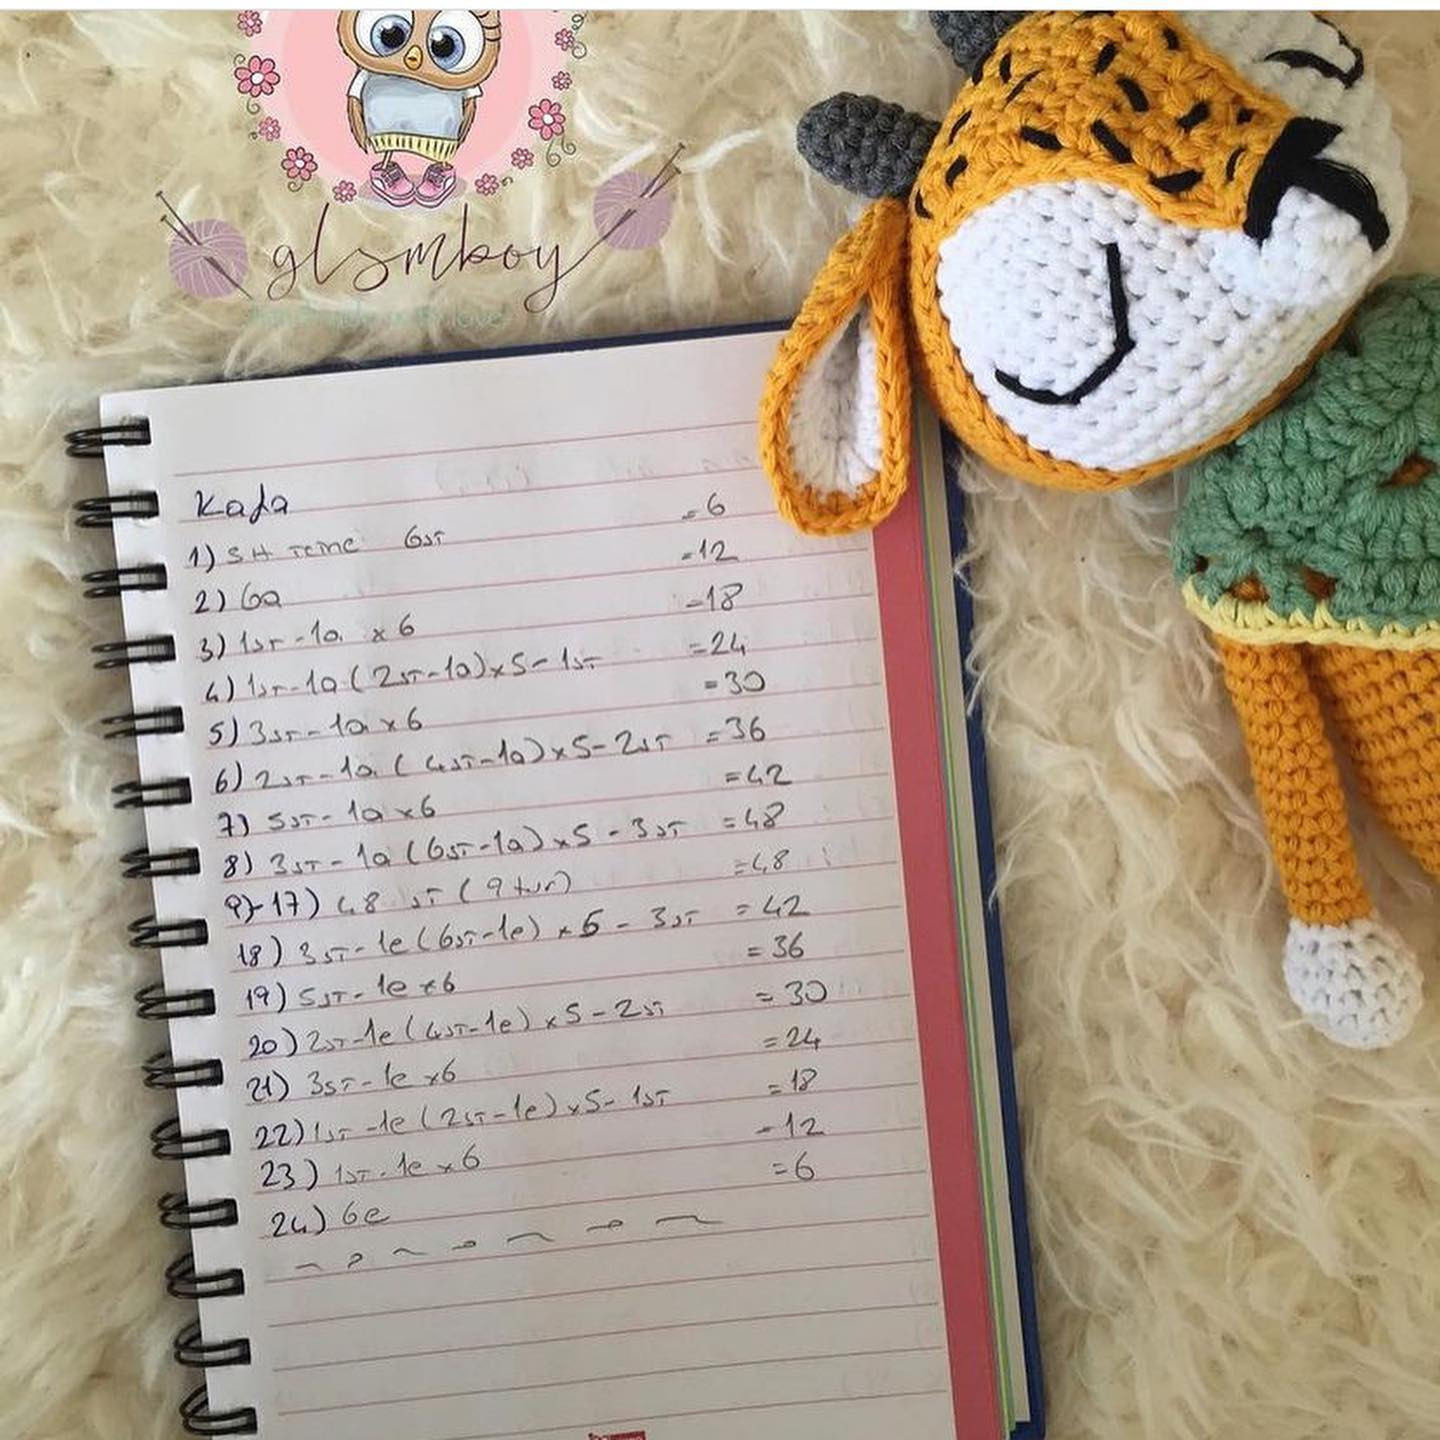 glsmboy
handmade with love
Kafa
1) SH icine 6sr =6
2) 6a =12
3) 1sr-1a x6 =18
4) 1sr-1a (2sr-1a)x5-1sr =24
5) 3sr-1a x6 =30
6) 2sr-1a (4sr-1a)x5-2sr =36
7) 5sr-1a x6 =42
8) 3sr-1a (6sr-1a)x5-3sr =48
9)-17) 48 sr (9 tur) =48
18) 3sr-1e (6sr-1e) x5-3sr =42
19) 5sr-1e x6 =36
20) 2sr-1e (4sr-1e) x5-2sr =30
21) 3sr-1e x6 =24
22) 1sr-1e (2sr-1e) x5-1sr =18
23) 1sr-1e x6 =12
24) 6e =6